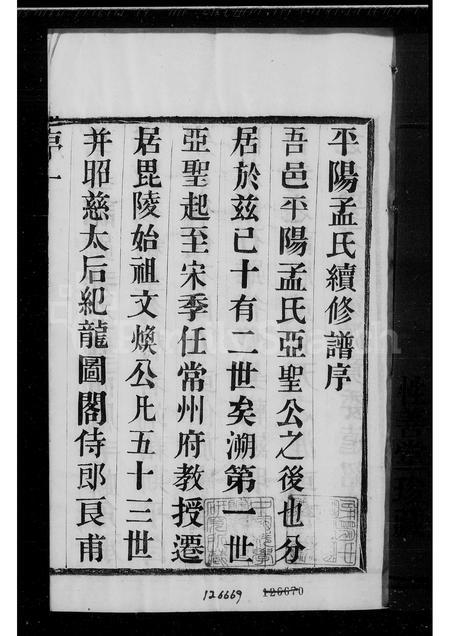 平陽孟氏續修譜序
吾邑平陽孟氏亞聖公之後也分
居於茲已十有二世矣溯第一世
亞聖起至宋季任常州府教授遷
居毘陵始祖文煥公凡五十三世
并昭慈太后紀龍圖閣侍郎良甫
序一
126669
126670